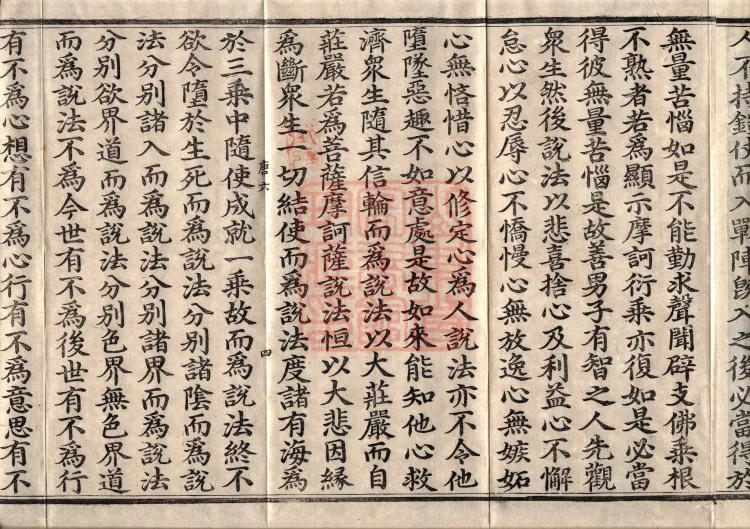 人不持鎧仗而入戰陣既入之後必當得於
無量苦惱如是不能勤求聲聞辟支佛乘根
不熟者若為顯示摩訶衍乘亦復如是必當
得彼無量苦惱是故善男子有智之人先觀
眾生然後說法以悲喜捨心及利益心不懈
怠心以忍辱心不憍慢心無放逸心無嫉妬
心無悋惜心以修定心為人說法亦不令他
墮墜惡趣不如意處是故如來能知他心救
濟眾生隨其信輪而為說法以大莊嚴而自
莊嚴若為菩薩摩訶薩說法恒以大悲因緣
為斷眾生一切結使而為說法度諸有海為
唐六
四
於三乘中隨使成就一乘故而為說法終不
欲令墮於生死而為說法分別諸陰而為說
法分別諸入而為說法分別諸界而為說法
分別欲界道而為說法分別色界無色界道
而為說法不為今世有不為後世有不為行
有不為心想有不為心行有不為意思有不